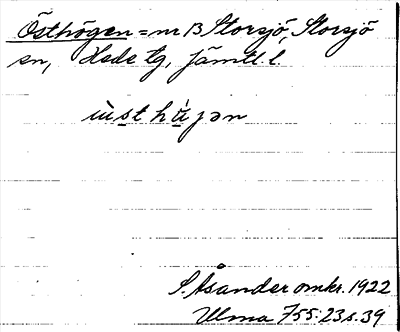 Östhögen = nr 13 Storsjö, Storsjö
sn, Hede tg, Jämtl. l.
ùsthùjən
S. Åsander omkr. 1922
Ulma 755:23 s. 39